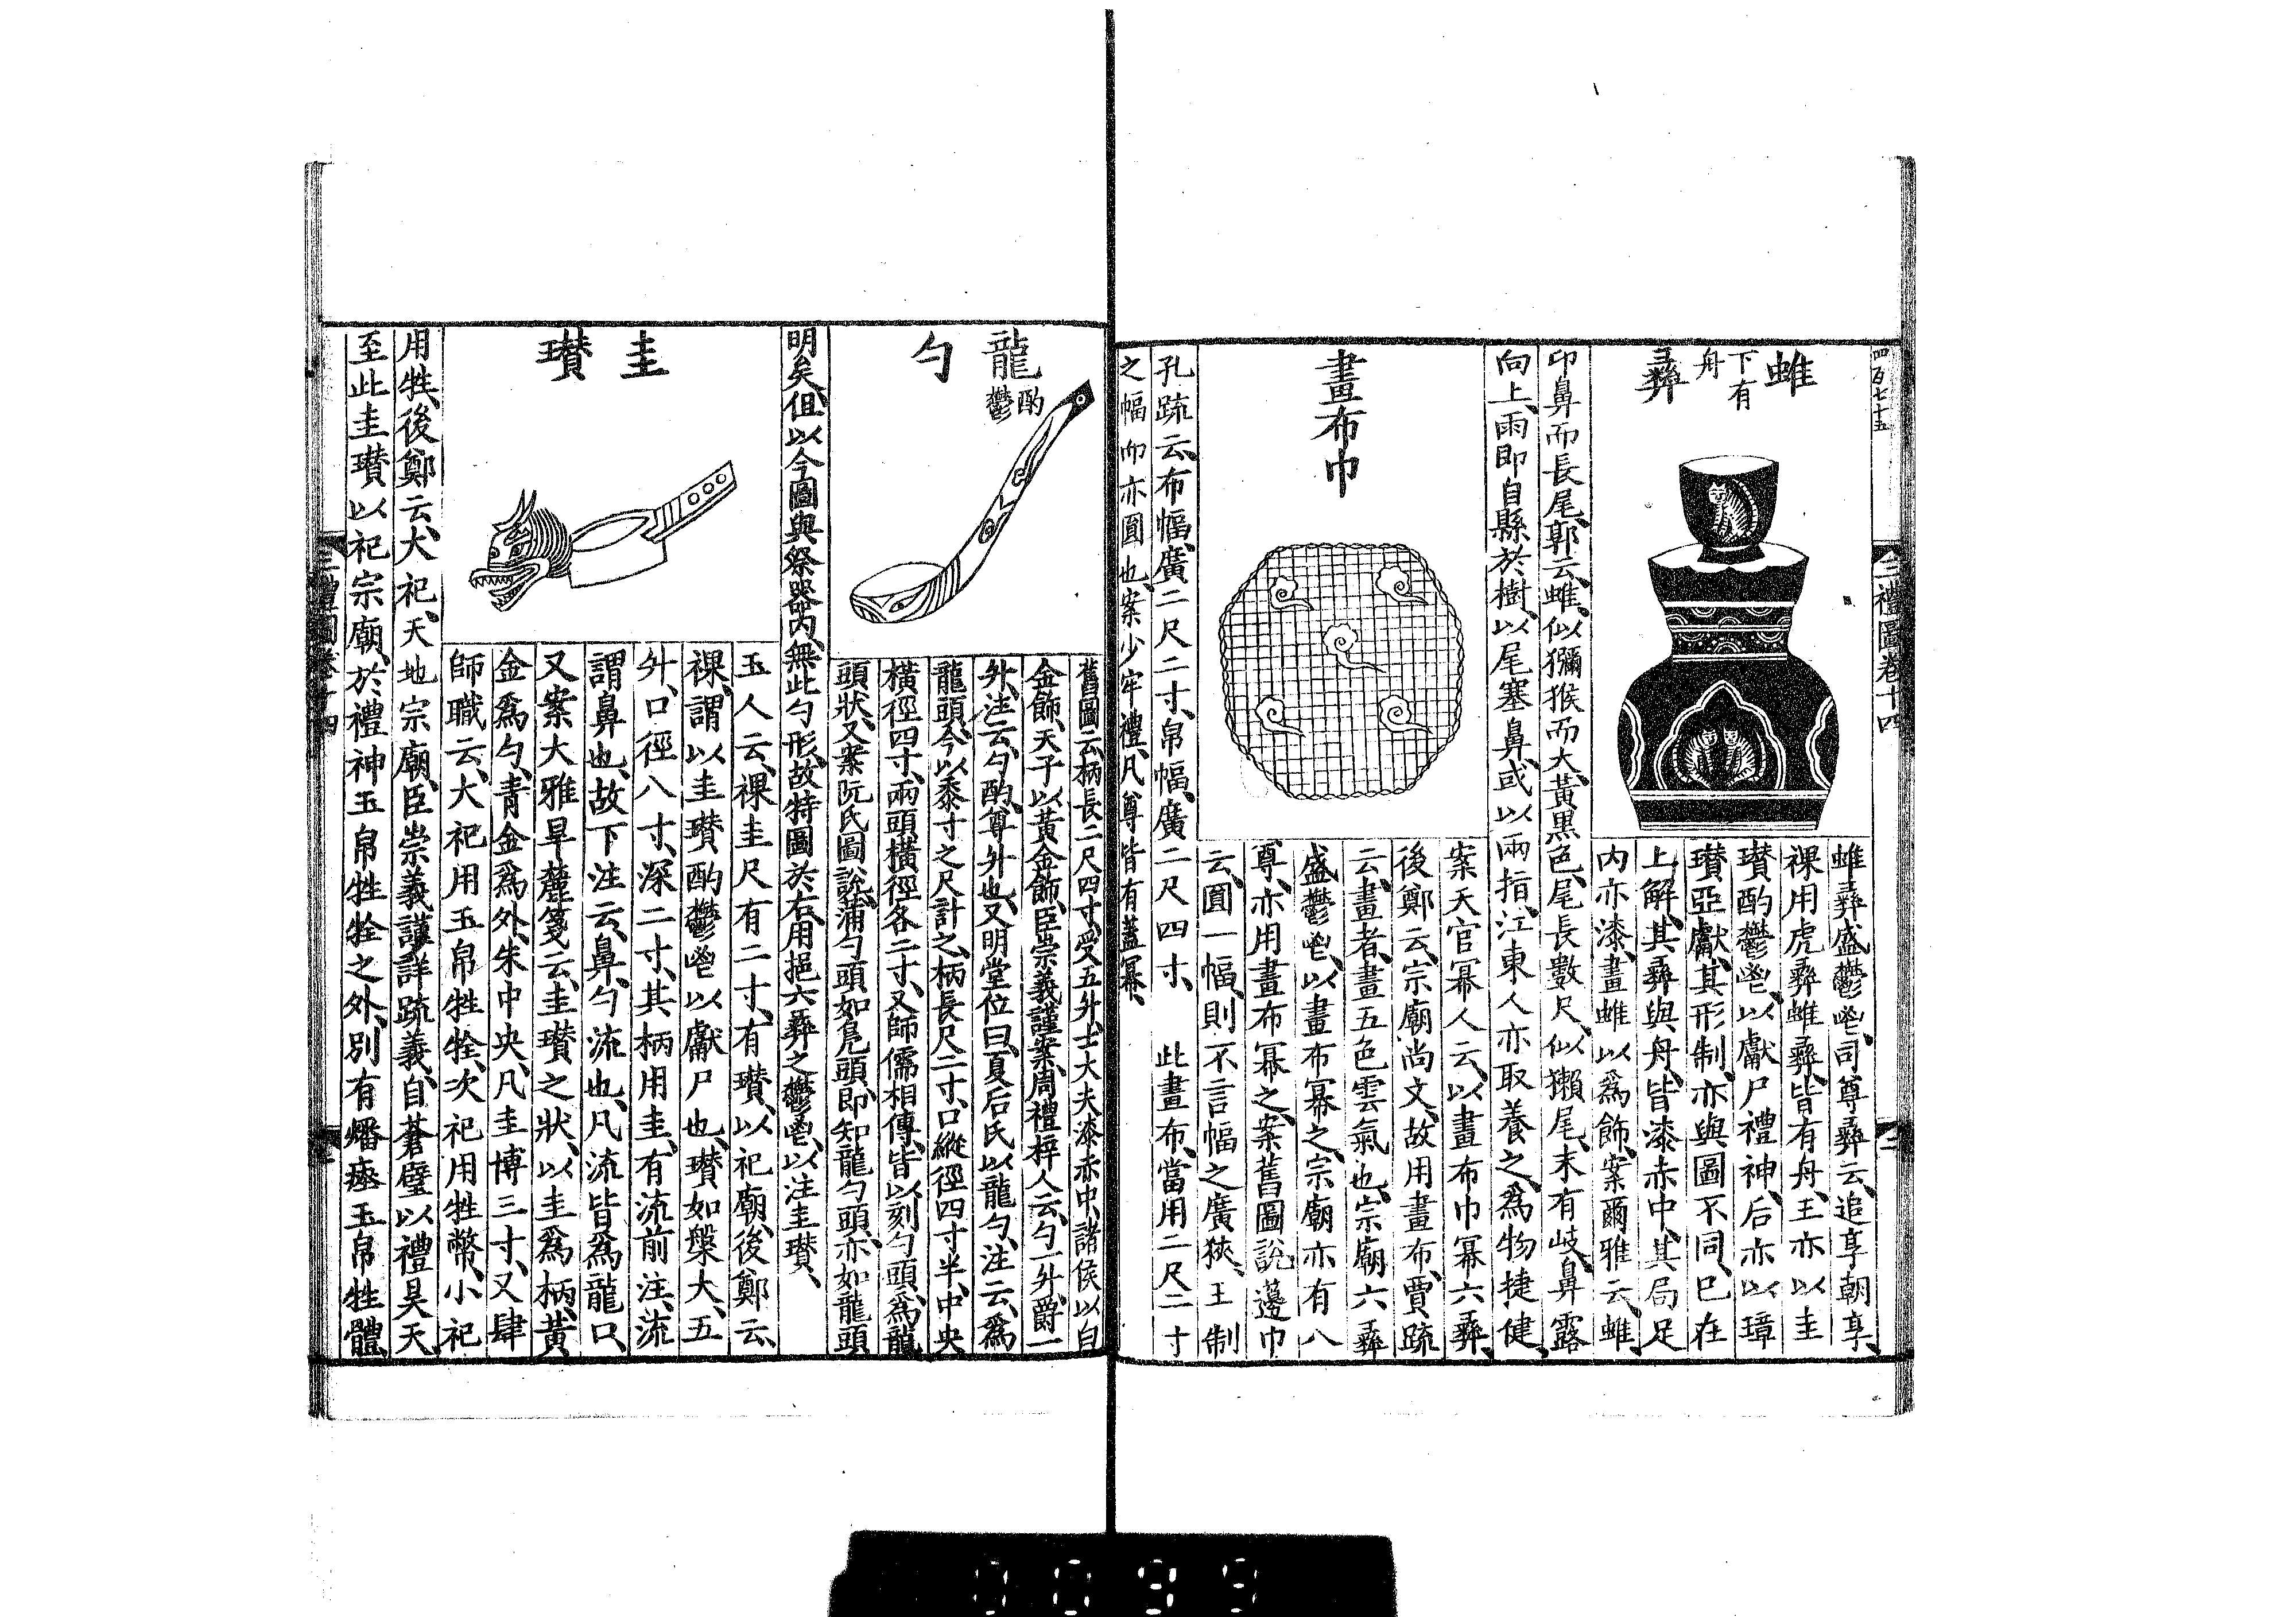 四百七十五
三禮圖卷十四
二
蜼彞
下有舟
蜼彞盛鬱鬯、司尊彞云、追享朝享、
祼用虎彞蜼彞、皆有舟、王亦以圭
瓚酌鬱鬯、以獻尸禮神、后亦以璋
瓚亞獻、其形制、亦與圖不同、已在
上解、其彞與舟、皆漆赤中、其局足
内亦漆、畫蜼以爲飾、案爾雅云、蜼、
卬鼻而長尾、郭云、蜼、似獼猴而大、黃黑色、尾長數尺、似獺尾、末有岐、鼻露
向上、雨即自縣於樹、以尾塞鼻、或以兩指、江東人亦取養之、爲物捷健、
畫布巾
案天官冪人云、以畫布巾冪六彞、
後鄭云、宗廟尚文、故用畫布、賈疏
云、畫者、畫五色雲氣也、宗廟六彞
盛鬱鬯、以畫布冪之、宗廟亦有八
尊、亦用畫布冪之、案舊圖說、籩巾
云、圓一幅、則不言幅之廣狹、王制
孔疏云、布幅、廣二尺二寸、帛幅、廣二尺四寸、 此畫布、當用二尺二寸
之幅而亦圓也、案少牢禮、凡尊皆有蓋冪、
龍勺
酌鬱
舊圖云、柄長二尺四寸、受五升、士大夫漆赤中、諸侯以白
金飾、天子以黃金飾、臣崇義謹案、周禮梓人云、勺一升、爵一
升、注云、勺酌、尊升也、又明堂位曰、夏后氏以龍勺、注云、爲
龍頭、今以黍寸之尺計之、柄長尺二寸、口縱徑四寸半、中央
橫徑四寸、兩頭橫徑各二寸、又師儒相傳、皆以刻勺頭、爲龍
頭狀、又案阮氏圖說、蒲勺頭如鳧頭、即知龍勺頭、亦如龍頭
明矣、但以今圖與祭器内、無此勺形、故特圖於右、用挹六彞之鬱鬯、以注圭瓚、
圭瓚
玉人云、祼圭尺有二寸、有瓚、以祀廟、後鄭云、
祼、謂以圭瓚酌鬱鬯以獻尸也、瓚如槃大、五
升、口徑八寸、深二寸、其柄用圭、有流前注、流
謂鼻也、故下注云、鼻、勺流也、凡流皆爲龍口、
又案大雅旱麓箋云、圭瓚之狀、以圭爲柄、黃
金爲勺、青金爲外、朱中央、凡圭博三寸、又肆
師職云、大祀用玉帛牲牷、次祀用牲幣、小祀
用牲、後鄭云、大祀、天地宗廟、臣崇義謹詳疏義、自蒼璧以禮昊天、
至此圭瓚以祀宗廟、於禮神玉帛牲牷之外、別有燔瘞玉帛牲體、
三禮圖卷十四